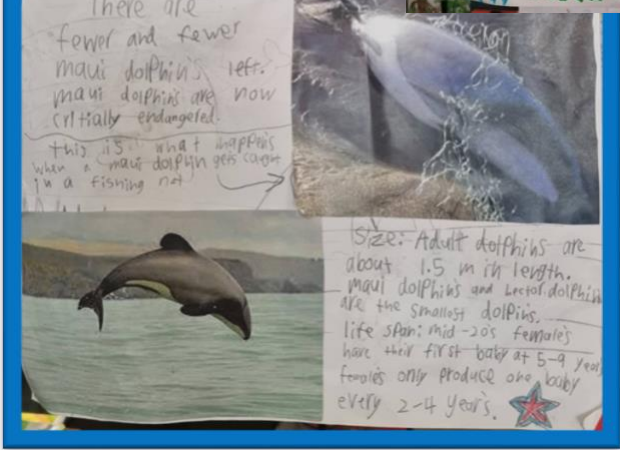 There are
fewer and fewer
maui dolphin's left.
maui dolphins are now
critially endangered.
this is what happens
when a maui dolphin gets caught
in a fishing net
Size: Adult dolphins are
about 1.5 m in length.
maui dolphins and hector dolphins
are the smallest dolpins.
life span: mid-20's females
have their first baby at 5-9 years
females only produce one baby
every 2-4 year's.